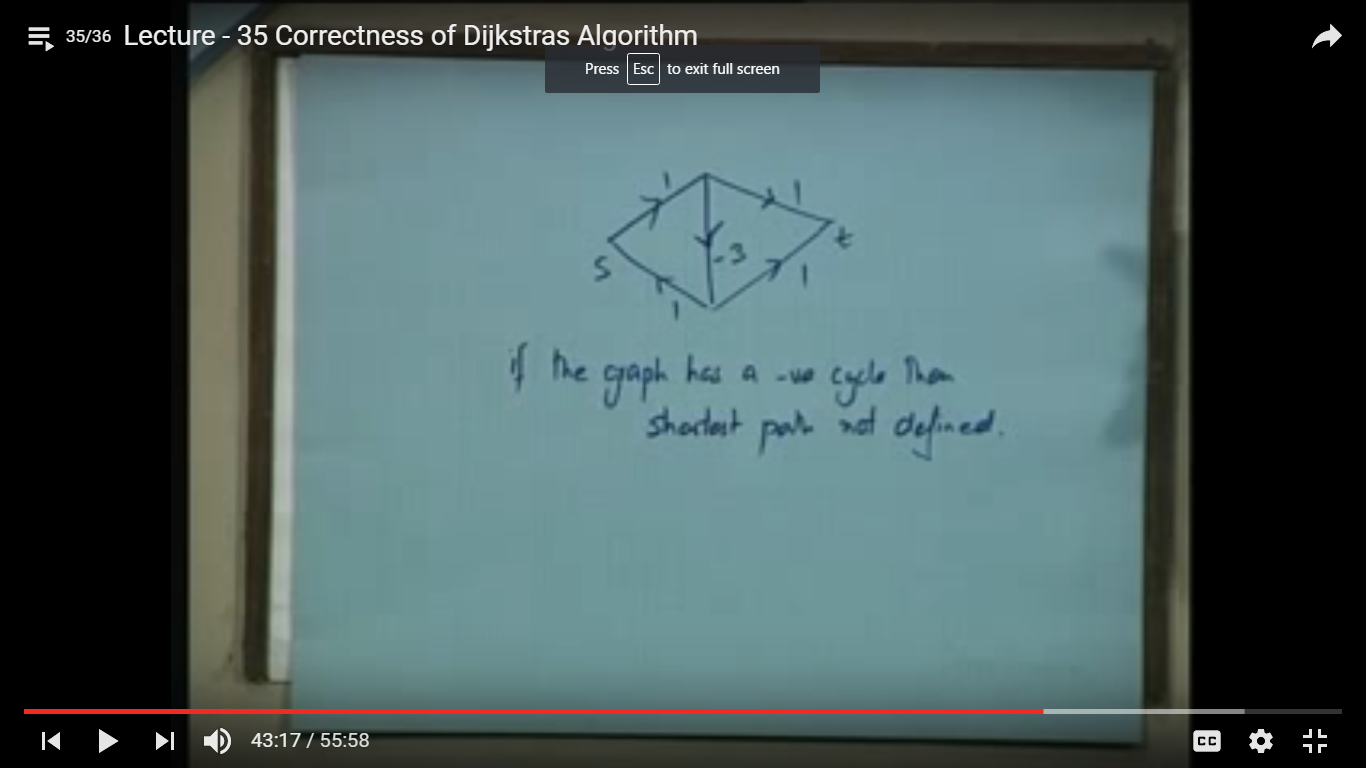 35/36 Lecture - 35 Correctness of Dijkstras Algorithm
Press Esc to exit full screen
1
1
S
-3
t
1
1
if the graph has a -ve cycle then
shortest path not defined.
43:17 / 55:58
CC